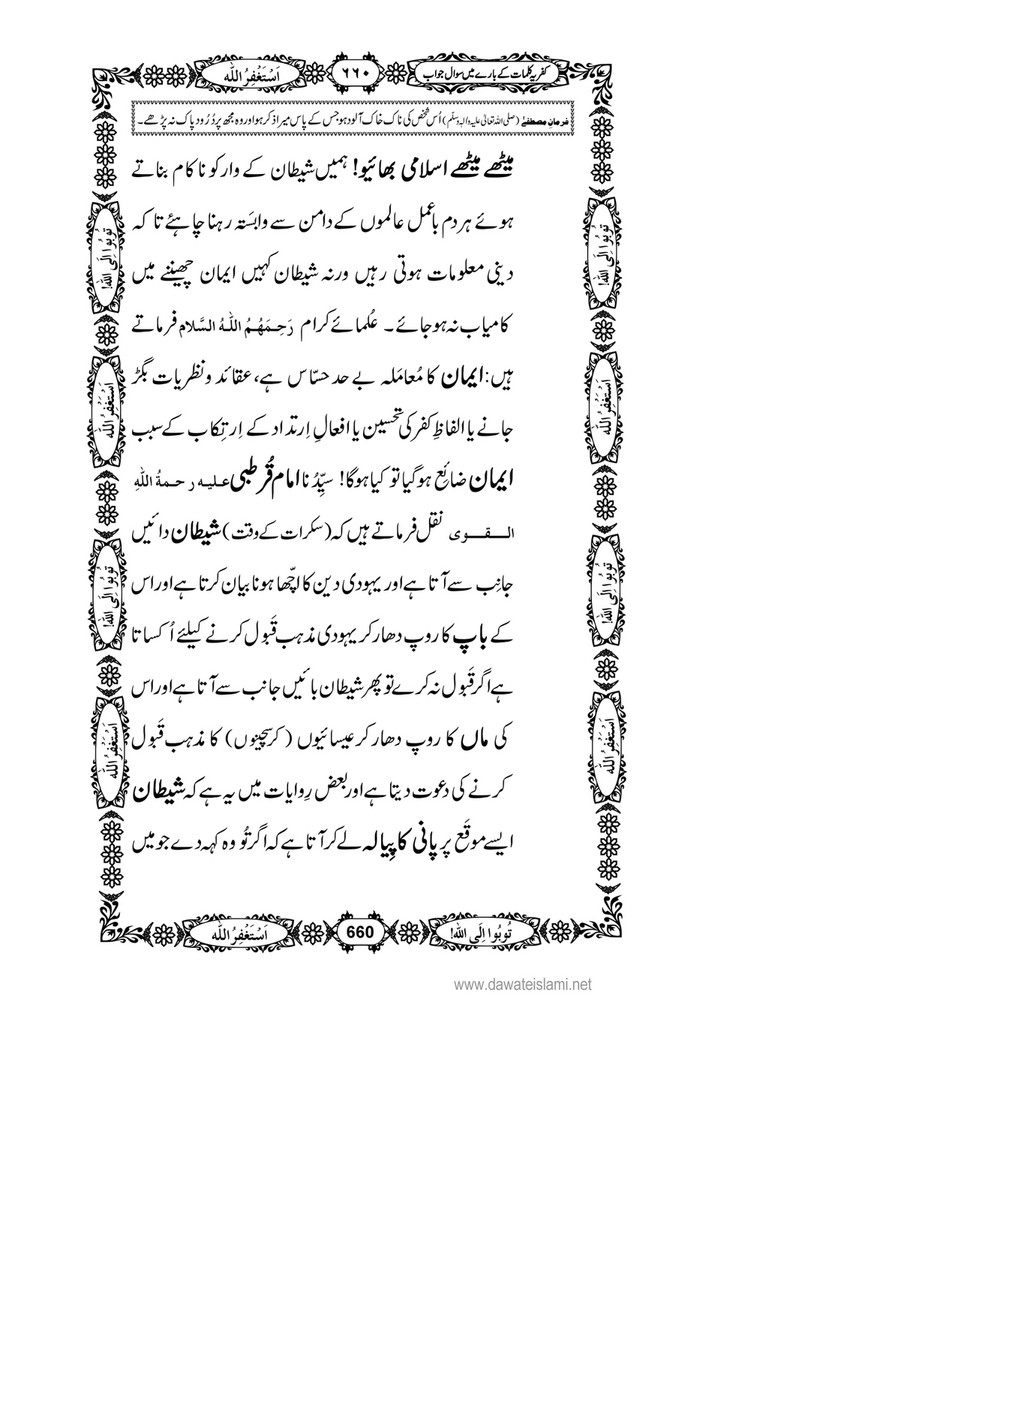 کفریہ کلمات کے بارے میں سوال جواب
٦٦٠
اَسْتَغْفِرُ اللّٰه
فرمانِ مصطفٰے (صلی اللہ تعالیٰ علیہ والہٖ وسلّم) اُس شخص کی ناک خاک آلود ہو جس کے پاس میرا ذکر ہو اور وہ مجھ پر دُرُود پاک نہ پڑھے۔
میٹھے میٹھے اسلامی بھائیو! ہمیں شیطان کے وار کو نا کام بناتے
ہوئے ہر دم باعمل عالموں کے دامن سے وابَستہ رہنا چاہئے تا کہ
دینی معلومات ہوتی رہیں ورنہ شیطان کہیں ایمان چھیننے میں
کامیاب نہ ہو جائے۔ عُلمائے کرام رَحِمَهُمُ اللّٰهُ السَّلام فرماتے
ہیں: ایمان کا مُعامَلہ بے حد حسّاس ہے، عقائد و نظریات بگڑ
جانے یا الفاظِ کفر کی تحسین یا افعالِ اِرتداد کے اِرتِکاب کے سبب
ایمان ضائع ہو گیا تو کیا ہوگا! سیِّدُنا امام قُرطبی علیہ رحمةُ اللّٰهِ
القوی نقل فرماتے ہیں کہ (سکرات کے وقت) شیطان دائیں
جانِب سے آتا ہے اور یہودی دین کا اچّھا ہونا بیان کرتا ہے اور اس
کے باپ کا روپ دھار کر یہودی مذہب قَبول کرنے کیلئے اُکساتا
ہے اگر قَبول نہ کرے تو پھر شیطان بائیں جانب سے آتا ہے اور اس
کی ماں کا روپ دھار کر عیسائیوں (کرسچینوں) کا مذہب قَبول
کرنے کی دعوت دیتا ہے اور بعض رِوایات میں یہ ہے کہ شیطان
ایسے موقَع پر پانی کا پِیالہ لے کر آتا ہے کہ اگر تُو وہ کہہ دے جو میں
تُوبُوا اِلَی اللّٰه!
اَسْتَغْفِرُ اللّٰه
تُوبُوا اِلَی اللّٰه!
اَسْتَغْفِرُ اللّٰه
تُوبُوا اِلَی اللّٰه!
اَسْتَغْفِرُ اللّٰه
تُوبُوا اِلَی اللّٰه!
اَسْتَغْفِرُ اللّٰه
تُوبُوا اِلَی اللّٰه!
660
اَسْتَغْفِرُ اللّٰه
www.dawateislami.net